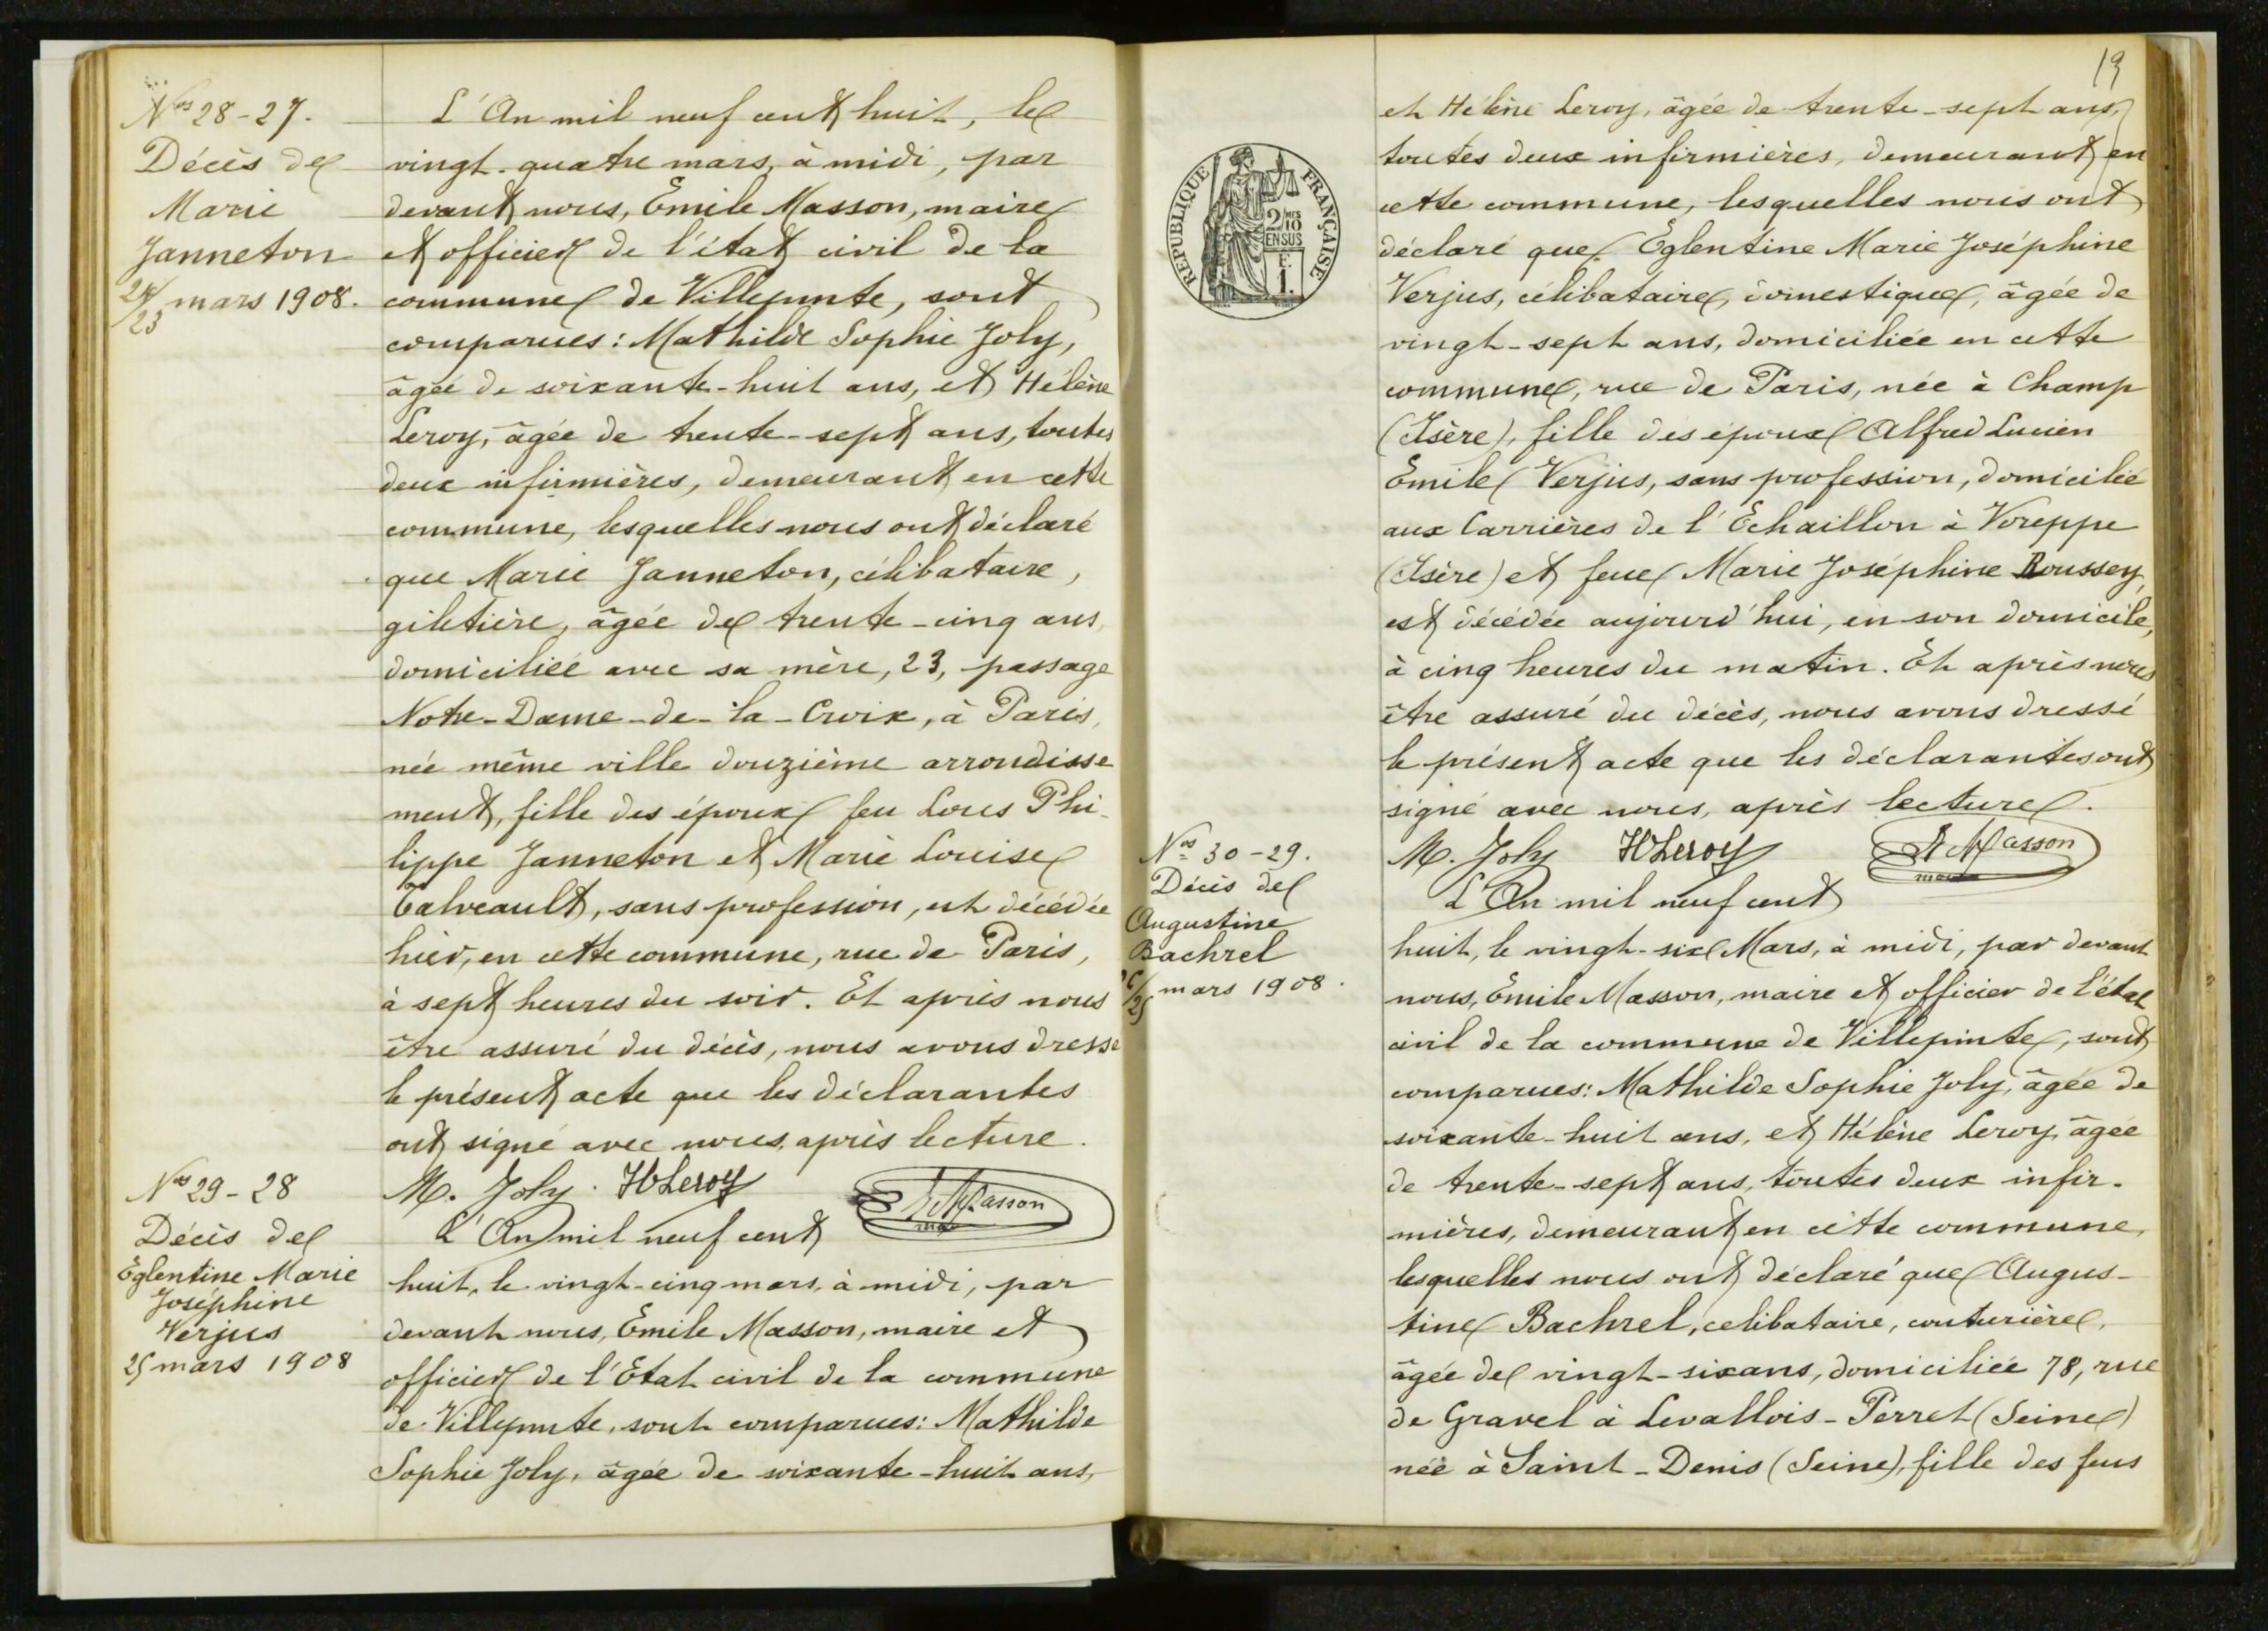 Nos 28-27.
Décès de
Marie
Janneton
24/23 mars 1908.
L'An mil neuf cent huit, le
vingt-quatre mars, à midi, par
devant nous, Emile Masson, maire
et officier de l'état civil de la
commune de Villepinte, sont
comparues: Mathilde Sophie Joly,
âgée de soixante-huit ans, et Hélène
Leroy, âgée de trente-sept ans, toutes
deux infirmières, demeurant en cette
commune, lesquelles nous ont déclaré
que Marie Janneton, célibataire,
giletière, âgée de trente-cinq ans,
domiciliée avec sa mère, 23, passage
Notre-Dame-de-la-Croix, à Paris,
née même ville douzième arrondisse
ment, fille des époux feu Louis Phi-
lippe Janneton et Marie Louise
Talveault, sans profession, est décédée
hier, en cette commune, rue de Paris,
à sept heures du soir. Et après nous
être assuré du décès, nous avons dressé
le présent acte que les déclarantes
ont signé avec nous, après lecture.
M. Joly. H Leroy E Masson
maire
Nos 29-28
Décès de
Églentine Marie
Joséphine
Verjus
25 mars 1908
L'An mil neuf cent
huit, le vingt-cinq mars, à midi, par
devant nous, Emile Masson, maire et
officier de l'Etat civil de la commune
de Villepinte, sont comparues: Mathilde
Sophie Joly, âgée de soixante-huit ans,
19
RÉPUBLIQUE FRANÇAISE
2/10 MES
EN SUS
F.
1.
et Hélène Leroy, âgée de trente-sept ans,
toutes deux infirmières, demeurant en
cette commune, lesquelles nous ont
déclaré que Églentine Marie Joséphine
Verjus, célibataire, domestique, âgée de
vingt-sept ans, domiciliée en cette
commune, rue de Paris, née à Champ
(Isère), fille des époux Alfred Lucien
Emile Verjus, sans profession, domicilié
aux Carrières de l'Echaillon à Voreppe
(Isère) et feue Marie Joséphine Roussey,
est décédée aujourd'hui, en son domicile,
à cinq heures du matin. Et après nous
être assuré du décès, nous avons dressé
le présent acte que les déclarantes ont
signé avec nous, après lecture.
M. Joly H Leroy E Masson
maire
Nos 30-29.
Décès de
Augustine
Bachrel
26/25 mars 1908.
L'An mil neuf cent
huit, le vingt-six Mars, à midi, par devant
nous, Emile Masson, maire et officier de l'état
civil de la commune de Villepinte, sont
comparues: Mathilde Sophie Joly, âgée de
soixante-huit ans, et Hélène Leroy, âgée
de trente-sept ans, toutes deux infir-
mières, demeurant en cette commune,
lesquelles nous ont déclaré que Augus-
tine Bachrel, celibataire, couturière,
âgée de vingt-six ans, domiciliée 78, rue
de Gravel à Levallois-Perret (Seine)
née à Saint-Denis (Seine), fille des feus